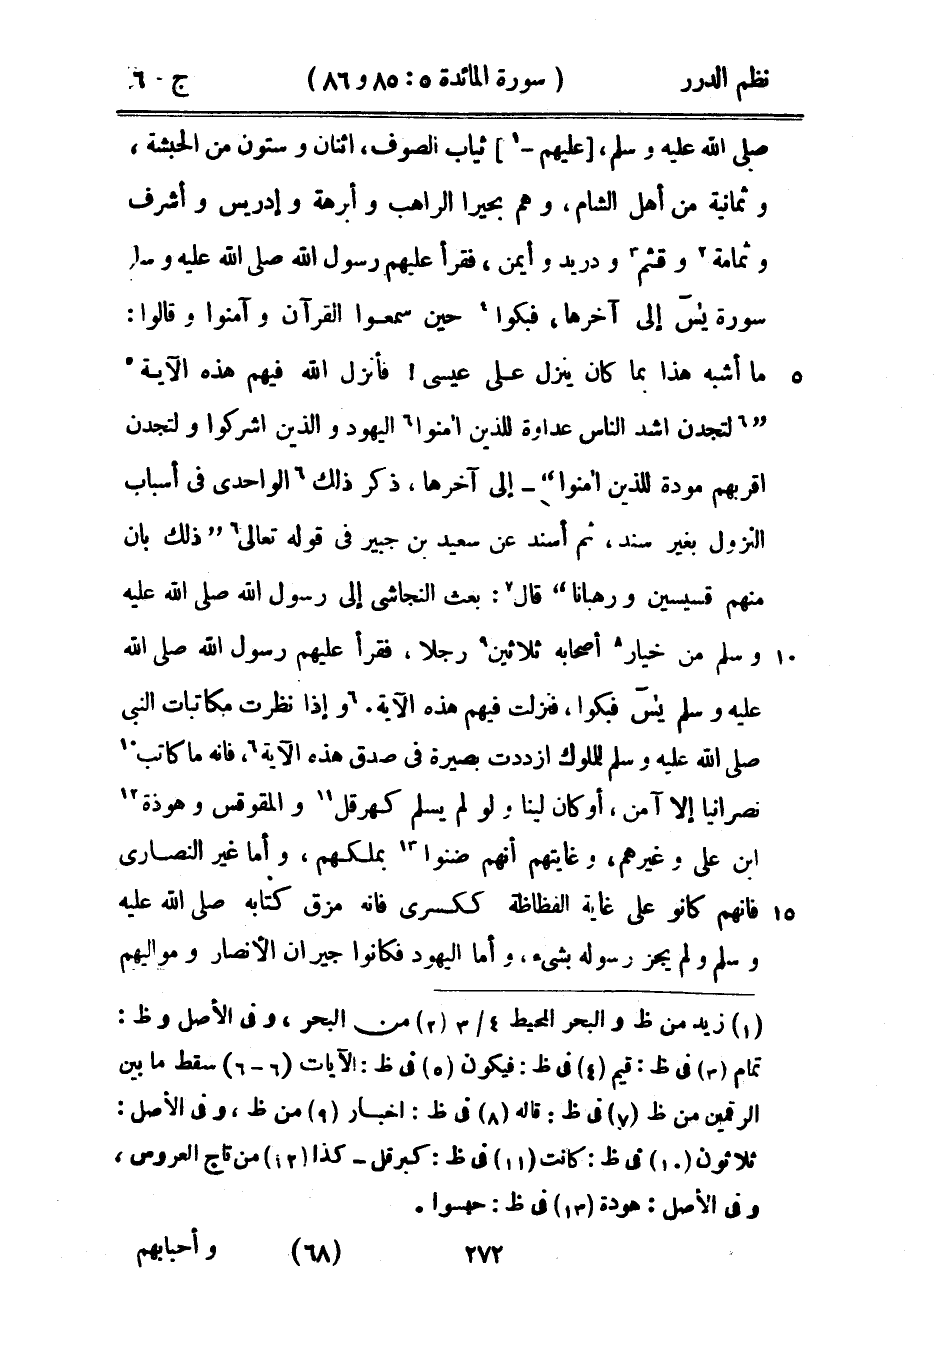 نظم الدرر ( سورة المائدة ٥ : ٨٥ و ٨٦ ) ج - ٦
صلى الله عليه و سلم، [عليهم -١] ثياب الصوف، اثنان و ستون من الحبشة ،
و ثمانية من أهل الشام، و هم بحيرا الراهب و أبرهة و إدريس و أشرف
و ثمامة٢ و قثم٣ و دريد و أيمن ، فقرأ عليهم رسول الله صلى الله عليه و سلم
سورة يٰسٓ إلى آخرها، فبكوا٤ حين سمعوا القرآن و آمنوا و قالوا :
٥ ما أشبه هذا بما كان ينزل على عيسى ! فأنزل الله فيهم هذه الآية٥
”٦لتجدن اشد الناس عداوة للذين اٰمنوا٦ اليهود و الذين اشركوا و لتجدن
اقربهم مودة للذين اٰمنوا“ - إلى آخرها ، ذكر ذلك ٦الواحدى فى أسباب
النزول بغير سند، ثم أسند عن سعيد بن جبير فى قوله تعالى٦ ”ذلك بان
منهم قسيسين و رهبانا“ قال٧ : بعث النجاشى إلى رسول الله صلى الله عليه
١٠ و سلم من خيار٨ أصحابه ثلاثين٩ رجلا ، فقرأ عليهم رسول الله صلى الله
عليه و سلم يٰسٓ فبكوا ، فنزلت فيهم هذه الآية. ٦و إذا نظرت مكاتبات النبى
صلى الله عليه و سلم للملوك ازددت بصيرة فى صدق هذه الآية٦، فانه ما كاتب١٠
نصرانيا إلا آمن ، أو كان لينا و لو لم يسلم كهرقل١١ و المقوقس و هوذة١٢
ابن على و غيرهم، و غايتهم أنهم ضنوا١٣ بملكهم ، و أما غير النصارى
١٥ فانهم كانو على غاية الفظاظة ككسرى فانه مزق كتابه صلى الله عليه
و سلم و لم يجز رسوله بشىء، و أما اليهود فكانوا جيران الأنصار و مواليهم
(١) زيد من ظ و البحر المحيط ٤ / ٣ (٢) من البحر ، و فى الأصل و ظ :
تمام (٣) فى ظ : قيم (٤) فى ظ : فيكون (٥) فى ظ : الآيات (٦-٦) سقط ما بين
الرقمين من ظ (٧) فى ظ : قاله (٨) فى ظ : اخبار (٩) من ظ ، و فى الأصل :
ثلاثون (١٠) فى ظ : كانت (١١) فى ظ : كبرقل - كذا (١٢) من تاج العروس ،
و فى الأصل : هودة (١٣) فى ظ : حهسوا .
٢٧٢ (٦٨) و أحبابهم